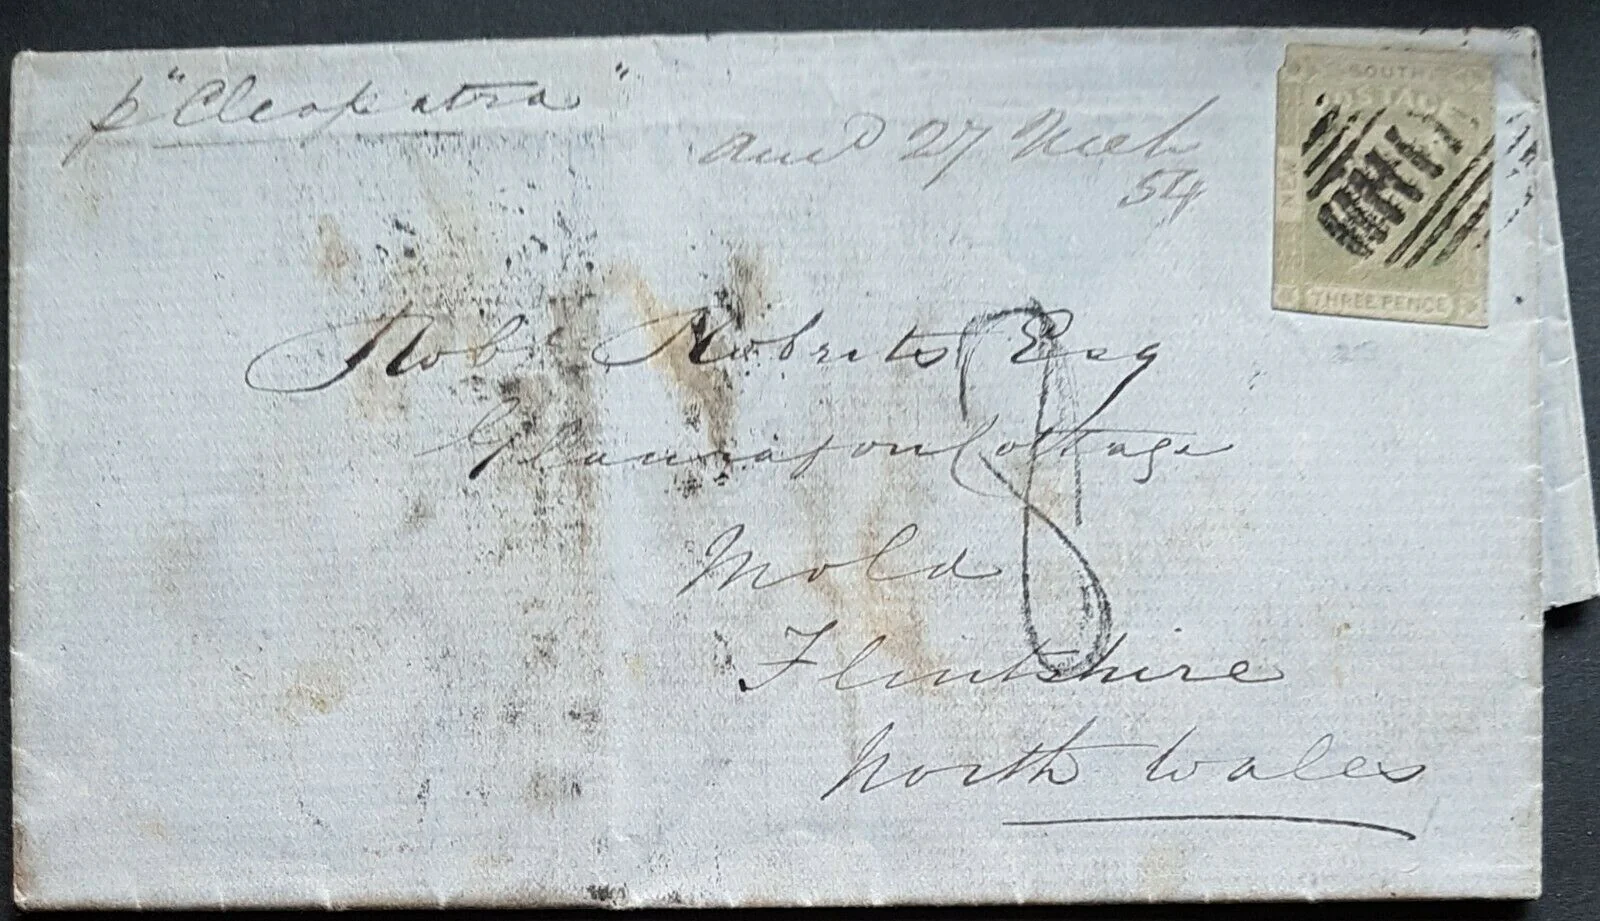 p "Cleopatra"
27 March
54
SOUTH
POSTAGE
NEW
THREE PENCE
Robt Roberts Esq
Cottage
8
Mold
Flintshire
North Wales